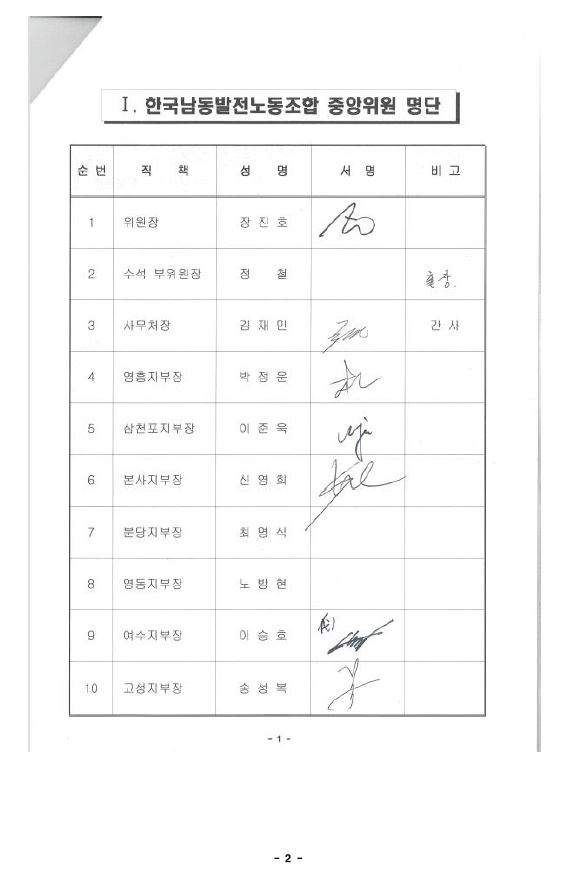 Ⅰ. 한국남동발전노동조합 중앙위원 명단
순 번 직 책 성 명 서 명 비 고
1 위원장 장 진 호
2 수석 부위원장 정 철 출장.
3 사무처장 김 재 민 간 사
4 영흥지부장 박 정 운
5 삼천포지부장 이 준 욱
6 본사지부장 신 영 희
7 분당지부장 최 영 식
8 영동지부장 노 방 현
9 여수지부장 이 승 호
10 고성지부장 송 성 복
- 1 -
- 2 -